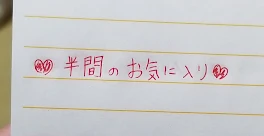 半間のお気に入り